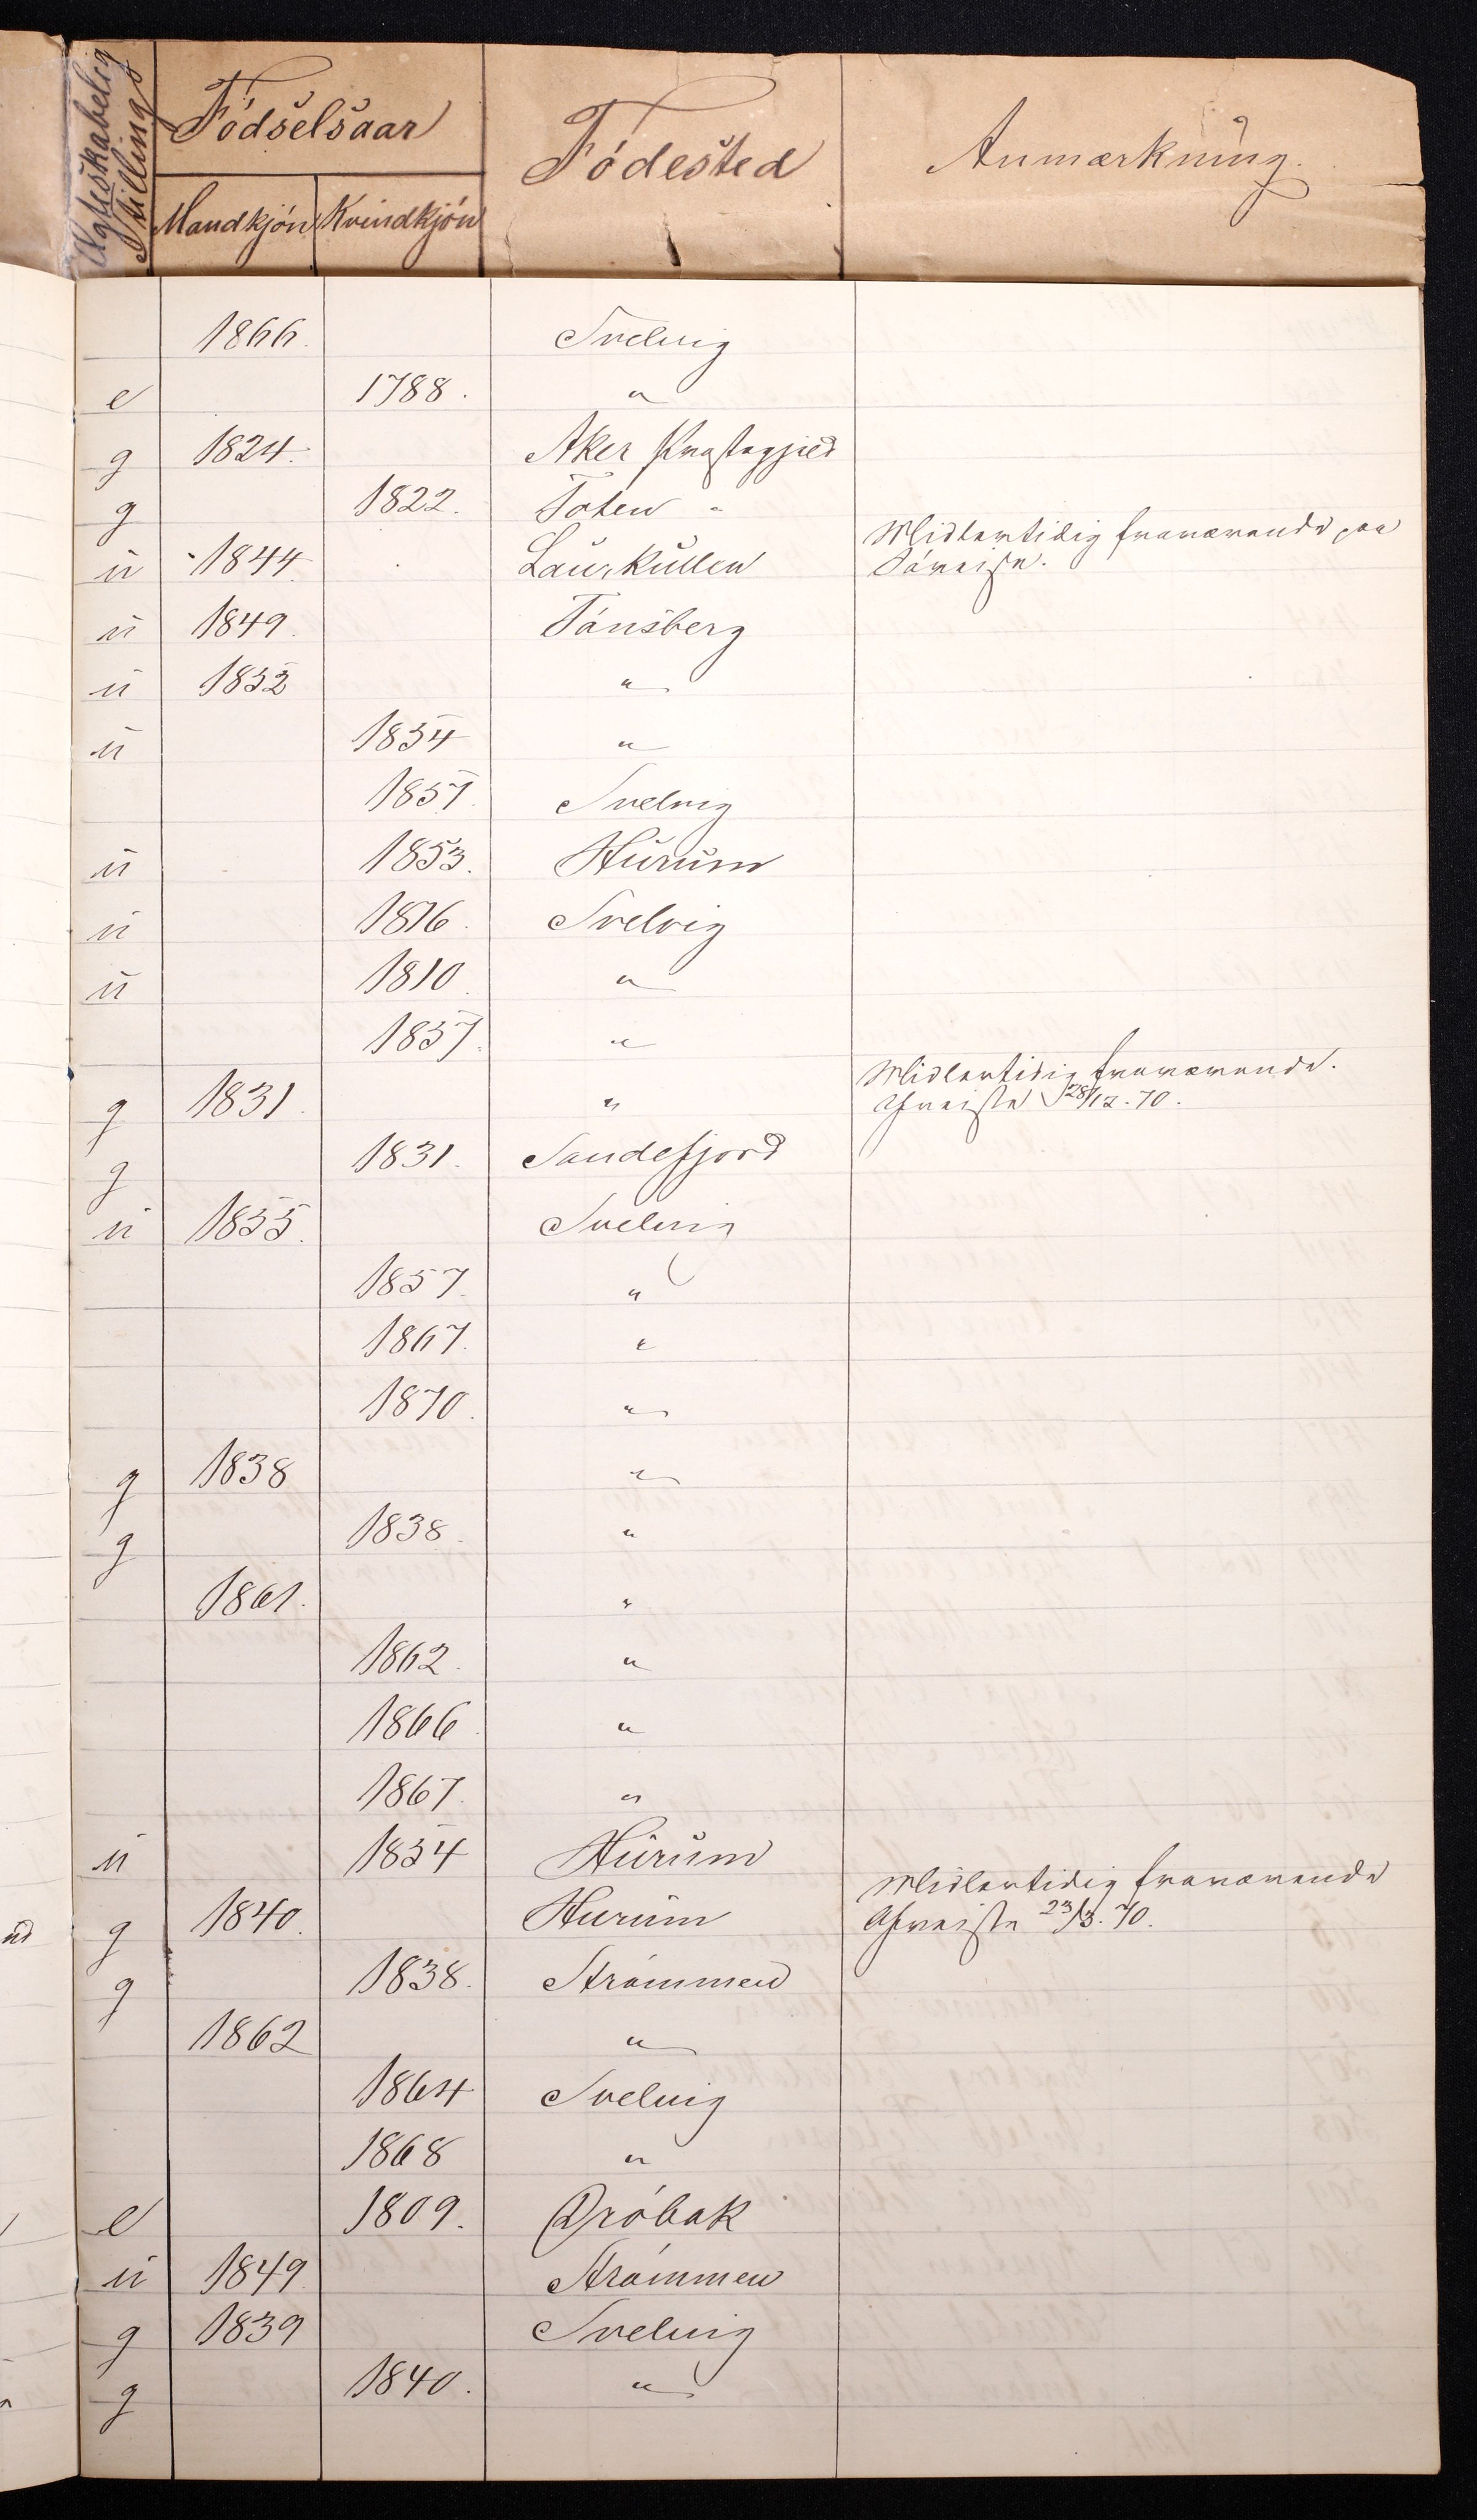 Ægteskabelig
Stilling
Födselsaar
Mandkjón Kvindkjón
Fódested
Anmærkning.
1866. Svelvig
e 1788. "
g 1824. Aker Præstegjeld
g 1822. Toten "
Midlertidig fraværende paa
u 1844. Laurkullen Söreise.
u 1849. Tónsberg
u 1852 "
u 1854 "
1857. Svelvig
u 1853. Hurum
u 1816. Svelvig
u 1810. "
1857. "
Midlertidig fraværende.
g 1831. " Afreiste 28/12.70.
g 1831. Sandefjord
u 1855. Svelvig
1857. "
1867. "
1870. "
g 1838 "
g 1838. "
1861. "
1862. "
1866. "
1867. "
u 1854 Hurum
Midlertidig fraværende
g 1840. Hurum Afreiste 23/3.70.
g 1838. Strómmen
1862 "
1864 Svelvig
1868 "
e 1809. Dróbak
u 1849. Strómmen
g 1839 Svelvig
g 1840. "